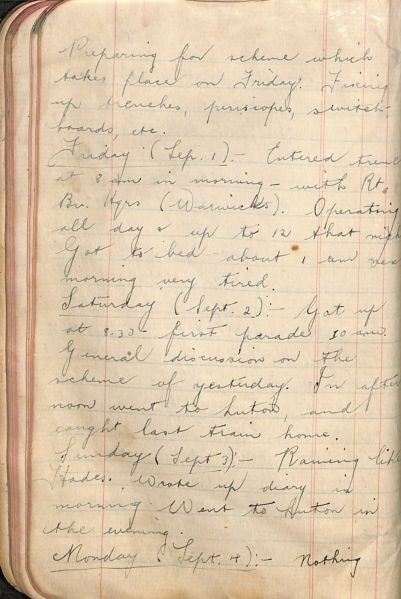 Preparing for scheme which
takes place on Friday. Fixing
up trenches, periscopes, switch-
boards, etc.
Friday (Sep. 1):- Entered trenc
at 8 am in morning - with Rt.
Bn. Hqrs (Warwicks). Operating
all day & up to 12 that nigh
Got to bed about 1 am nex
morning very tired.
Saturday (Sept. 2):- Got up
at 8.30 - first parade 10 am.
General discussion on the
scheme of yesterday. In after
noon went to Luton, and
caught last train home.
Sunday (Sept 3):- Raining like
Hades. Wrote up diary in
morning Went to Luton in
the evening.
Monday (Sept. 4):- Nothing